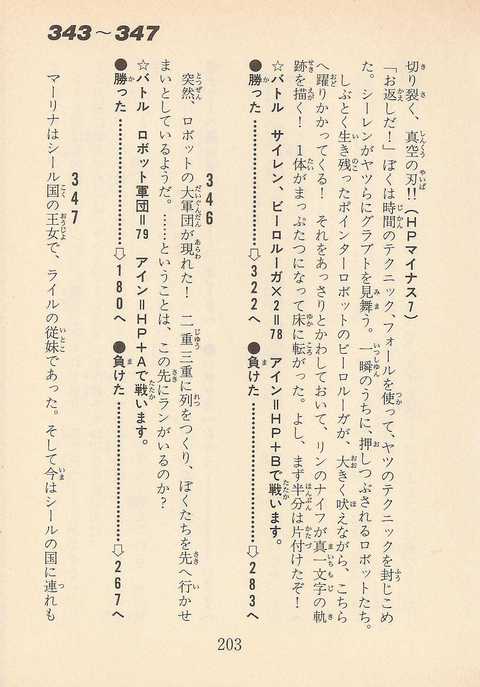 343～347
切り裂く、真空の刃!!(HPマイナス7)
「お返しだ!」ぼくは時間のテクニック、フォールを使って、ヤツのテクニックを封じこめ
た。シーレンがヤツらにグラブトを見舞う。一瞬のうちに、押しつぶされるロボットたち。
しぶとく生き残ったポインターロボットのビーロルーガが、大きく吠えながら、こちら
へ躍りかかってくる! それをあっさりとかわしておいて、リンのナイフが真一文字の軌
跡を描く! 1体がまっぷたつになって床に転がった。よし、まず半分は片付けたぞ!
☆バトル サイレン、ビーロルーガ×2=78 アイン=HP+Bで戦います。
●勝った…………⇨322へ ●負けた…………⇨283へ
346
突然、ロボットの大軍団が現れた! 二重三重に列をつくり、ぼくたちを先へ行かせ
まいとしているようだ。……ということは、この先にランがいるのか?
☆バトル ロボット軍団=79 アイン=HP+Aで戦います。
●勝った…………⇨180へ ●負けた…………⇨267へ
347
マーリナはシール国の王女で、ライルの従妹であった。そして今はシールの国に連れも
203